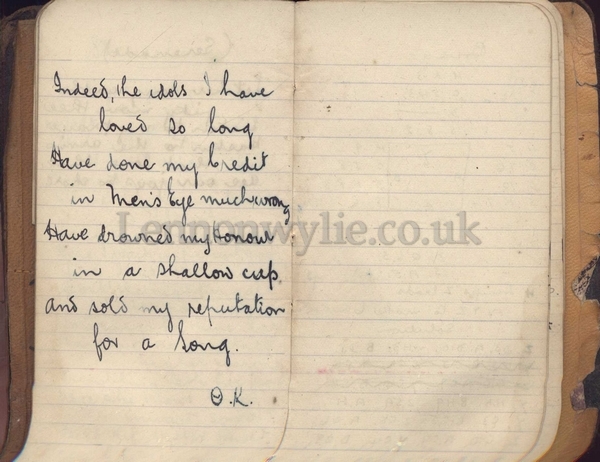 Indeed, the idols I have
loved so long
Have done my Credit
in Men's Eye much wrong
Have drowned my Honour
in a shallow cup
and sold my reputation
for a Song.
O.K.
Lennonwylie.co.uk